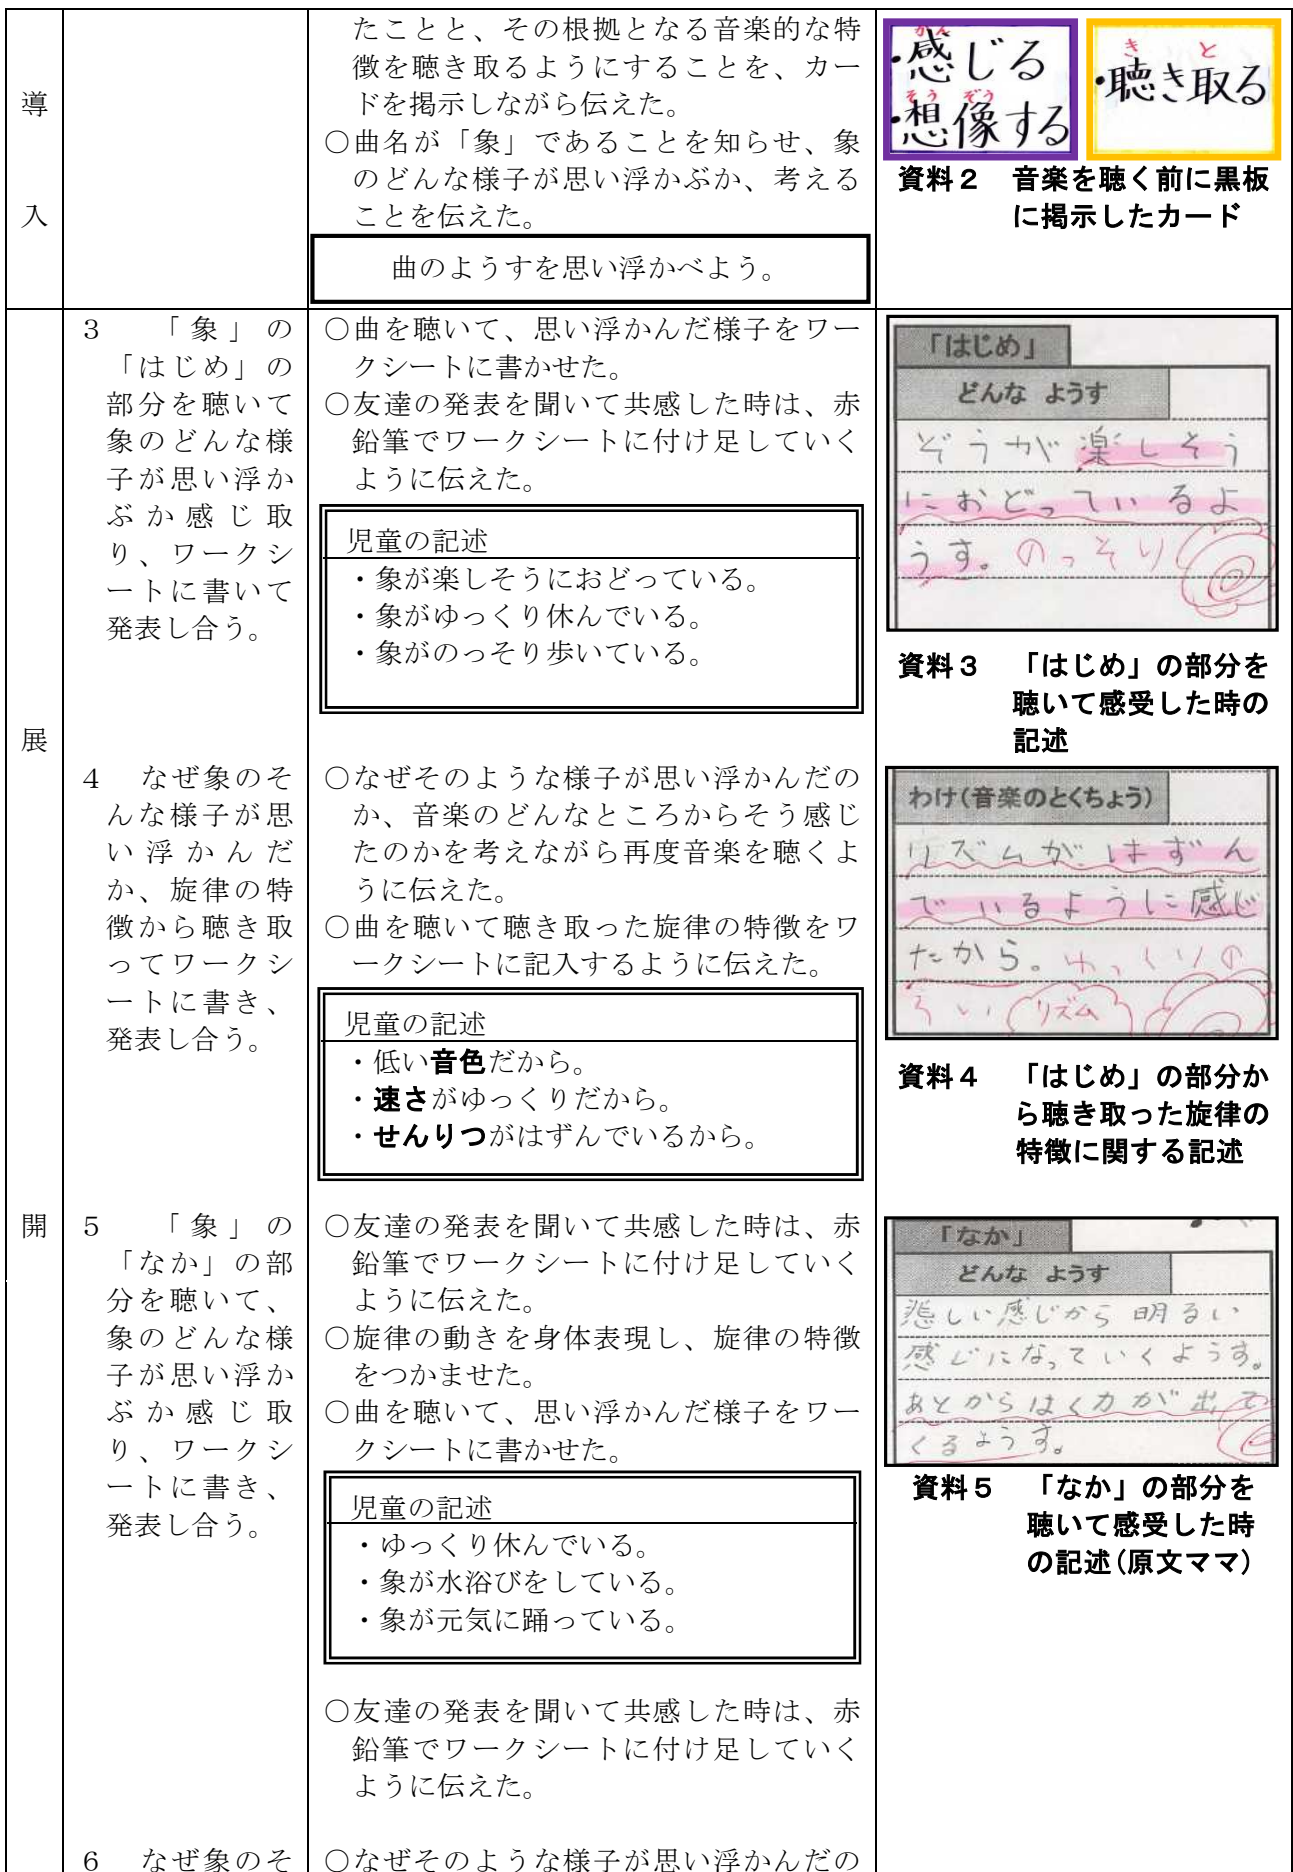 導
入
たことと、その根拠となる音楽的な特
徴を聴き取るようにすることを、カー
ドを掲示しながら伝えた。
○曲名が「象」であることを知らせ、象
のどんな様子が思い浮かぶか、考える
ことを伝えた。
曲のようすを思い浮かべよう。
かん
・感じる
そう ぞう
・想像する
き と
・聴き取る
資料2 音楽を聴く前に黒板
に掲示したカード
展
3 「象」の
「はじめ」の
部分を聴いて
象のどんな様
子が思い浮か
ぶか感じ取
り、ワークシ
ートに書いて
発表し合う。
○曲を聴いて、思い浮かんだ様子をワー
クシートに書かせた。
○友達の発表を聞いて共感した時は、赤
鉛筆でワークシートに付け足していく
ように伝えた。
児童の記述
・象が楽しそうにおどっている。
・象がゆっくり休んでいる。
・象がのっそり歩いている。
「はじめ」
どんな ようす
ぞうが楽しそう
におどっているよ
うす。のっそり
資料3 「はじめ」の部分を
聴いて感受した時の
記述
4 なぜ象のそ
んな様子が思
い浮かんだ
か、旋律の特
徴から聴き取
ってワークシ
ートに書き、
発表し合う。
○なぜそのような様子が思い浮かんだの
か、音楽のどんなところからそう感じ
たのかを考えながら再度音楽を聴くよ
うに伝えた。
○曲を聴いて聴き取った旋律の特徴をワ
ークシートに記入するように伝えた。
児童の記述
・低い音色だから。
・速さがゆっくりだから。
・せんりつがはずんでいるから。
わけ(音楽のとくちょう)
リズムがはずん
でいるように感じ
たから。ゆっくりの
リズム
資料4 「はじめ」の部分か
ら聴き取った旋律の
特徴に関する記述
開
5 「象」の
「なか」の部
分を聴いて、
象のどんな様
子が思い浮か
ぶか感じ取
り、ワークシ
ートに書き、
発表し合う。
○友達の発表を聞いて共感した時は、赤
鉛筆でワークシートに付け足していく
ように伝えた。
○旋律の動きを身体表現し、旋律の特徴
をつかませた。
○曲を聴いて、思い浮かんだ様子をワー
クシートに書かせた。
児童の記述
・ゆっくり休んでいる。
・象が水浴びをしている。
・象が元気に踊っている。
○友達の発表を聞いて共感した時は、赤
鉛筆でワークシートに付け足していく
ように伝えた。
「なか」
どんな ようす
悲しい感じから明るい
感じになっていくようす。
あとからはく力が出て
くるようす。
資料5 「なか」の部分を
聴いて感受した時
の記述(原文ママ)
6 なぜ象のそ
○なぜそのような様子が思い浮かんだの